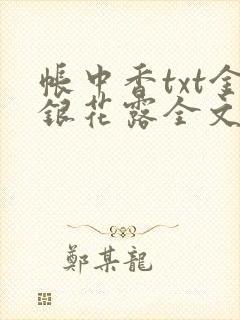 帳中香txt金
銀花露全文
鄭某龍